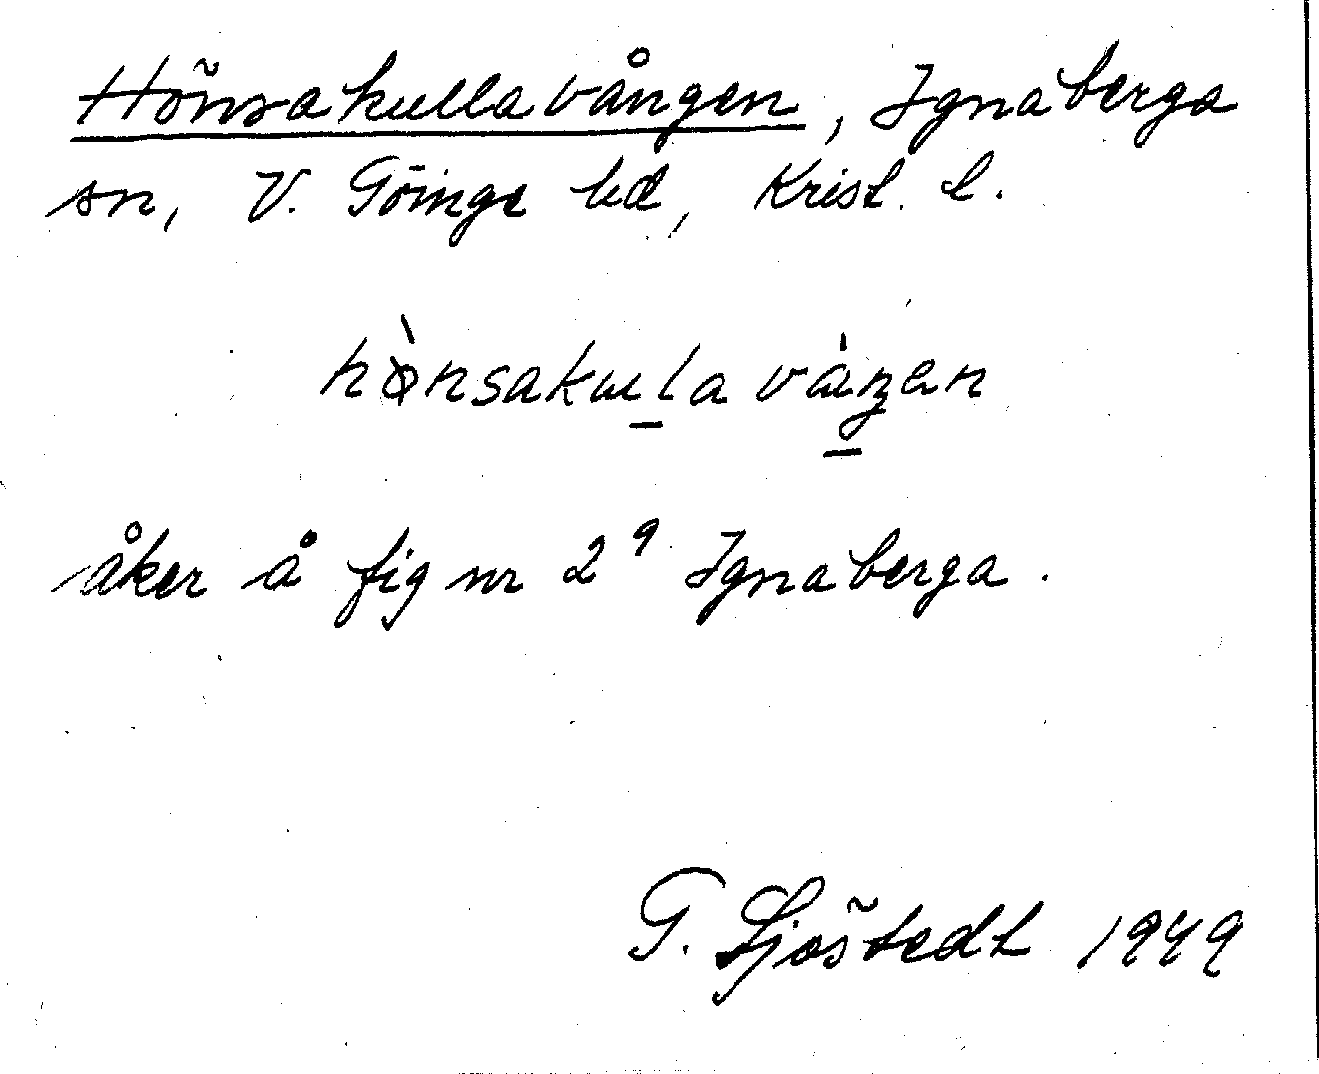 Hönsakullavången, Ignaberga
sn, V. Göinge hd, Krist. l.
hònsakula våŋen
åker å fig nr 2⁹ Ignaberga.
G. Sjöstedt 1949